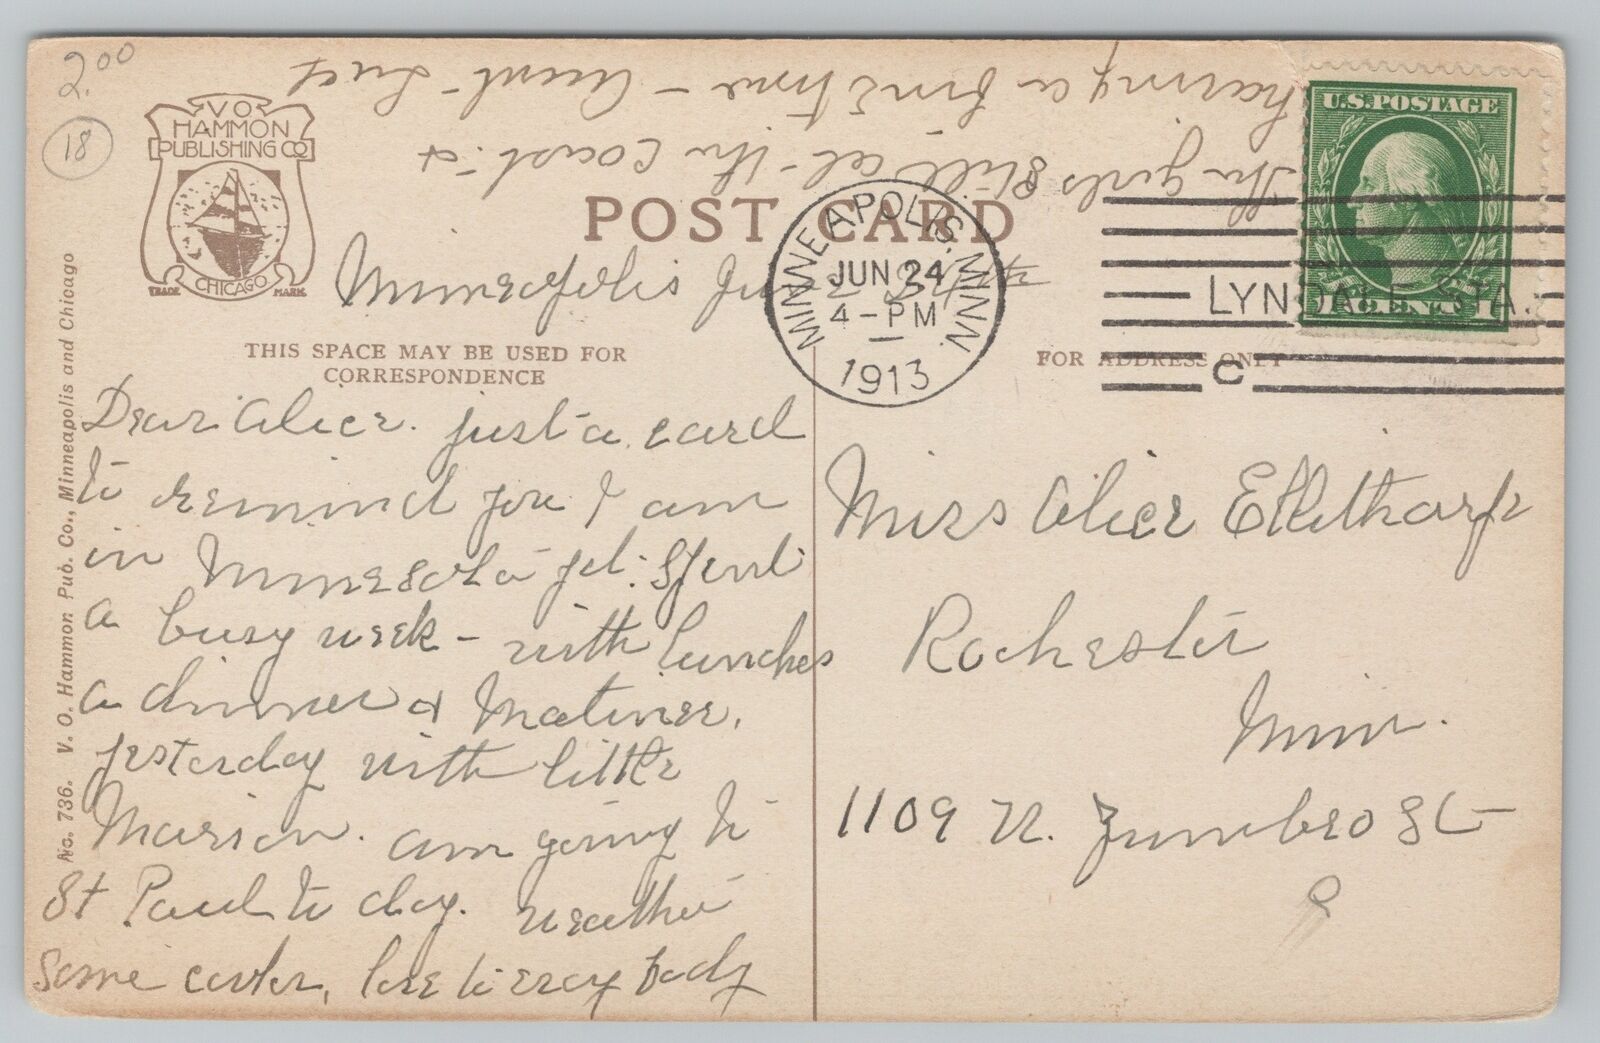 2.00
18
V.O.
HAMMON
PUBLISHING CO
CHICAGO
TRADE MARK
POST CARD
U.S. POSTAGE
MINNEAPOLIS. MINN.
JUN 24
4-PM
1913
LYNDALE STA.
C
Minneapolis June 24th
THIS SPACE MAY BE USED FOR
CORRESPONDENCE
FOR ADDRESS ONLY
No. 736. V. O. Hammon Pub. Co., Minneapolis and Chicago
Dear Alice. just a card
to remind you I am
in Minnesota yet. Spent
a busy week - with lunches
a dinner & Matinee.
yesterday with little
Marion. am going to
St Paul to day. weather
some cooler, love to every body
The girls still at the Coast. &
having a fine time - Aunt Luct
Miss Alice Ellithorpe
Rochester
Minn.
1109 N. Zumbro St